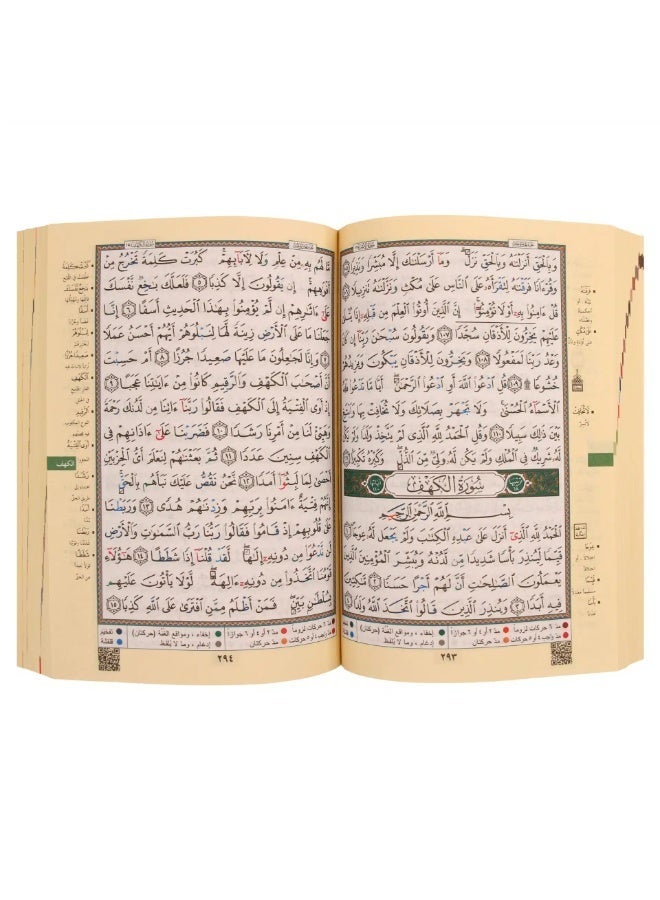 وَبِالْحَقِّ أَنزَلْنَٰهُ وَبِالْحَقِّ نَزَلَ ۗ وَمَا أَرْسَلْنَٰكَ إِلَّا مُبَشِّرًا وَنَذِيرًا ١٠٥
وَقُرْءَانًا فَرَقْنَٰهُ لِتَقْرَأَهُ عَلَى النَّاسِ عَلَىٰ مُكْثٍ وَنَزَّلْنَٰهُ تَنزِيلًا ١٠٦
قُلْ ءَامِنُوا بِهِ أَوْ لَا تُؤْمِنُوا ۚ إِنَّ الَّذِينَ أُوتُوا الْعِلْمَ مِن قَبْلِهِ إِذَا يُتْلَىٰ
عَلَيْهِمْ يَخِرُّونَ لِلْأَذْقَانِ سُجَّدًا ١٠٧ وَيَقُولُونَ سُبْحَٰنَ رَبِّنَا إِن كَانَ
وَعْدُ رَبِّنَا لَمَفْعُولًا ١٠٨ وَيَخِرُّونَ لِلْأَذْقَانِ يَبْكُونَ وَيَزِيدُهُمْ
خُشُوعًا ۩ ١٠٩ قُلِ ادْعُوا اللَّهَ أَوِ ادْعُوا الرَّحْمَٰنَ ۖ أَيًّا مَّا تَدْعُوا فَلَهُ
الْأَسْمَاءُ الْحُسْنَىٰ ۚ وَلَا تَجْهَرْ بِصَلَاتِكَ وَلَا تُخَافِتْ بِهَا وَابْتَغِ
بَيْنَ ذَٰلِكَ سَبِيلًا ١١٠ وَقُلِ الْحَمْدُ لِلَّهِ الَّذِي لَمْ يَتَّخِذْ وَلَدًا وَلَمْ يَكُن
لَّهُ شَرِيكٌ فِي الْمُلْكِ وَلَمْ يَكُن لَّهُ وَلِيٌّ مِّنَ الذُّلِّ ۖ وَكَبِّرْهُ تَكْبِيرًا ١١١
سُورَةُ الْكَهْفِ
بِسْمِ اللَّهِ الرَّحْمَٰنِ الرَّحِيمِ
الْحَمْدُ لِلَّهِ الَّذِي أَنزَلَ عَلَىٰ عَبْدِهِ الْكِتَٰبَ وَلَمْ يَجْعَل لَّهُ عِوَجَا ١
قَيِّمًا لِّيُنذِرَ بَأْسًا شَدِيدًا مِّن لَّدُنْهُ وَيُبَشِّرَ الْمُؤْمِنِينَ الَّذِينَ
يَعْمَلُونَ الصَّٰلِحَٰتِ أَنَّ لَهُمْ أَجْرًا حَسَنًا ٢ مَّٰكِثِينَ
فِيهِ أَبَدًا ٣ وَيُنذِرَ الَّذِينَ قَالُوا اتَّخَذَ اللَّهُ وَلَدًا ٤
مد ٦ حركات لزوما مد ٢ أو ٤ أو ٦ جوازا إخفاء، ومواقع الغُنَّة (حركتان) تفخيم
مد واجب ٤ أو ٥ حركات مد حركتان إدغام، وما لا يُلفظ قلقلة
٢٩٣
مَّا لَهُم بِهِ مِنْ عِلْمٍ وَلَا لِآبَائِهِمْ ۚ كَبُرَتْ كَلِمَةً تَخْرُجُ مِنْ
أَفْوَٰهِهِمْ ۚ إِن يَقُولُونَ إِلَّا كَذِبًا ٥ فَلَعَلَّكَ بَٰخِعٌ نَّفْسَكَ
عَلَىٰ ءَاثَٰرِهِمْ إِن لَّمْ يُؤْمِنُوا بِهَٰذَا الْحَدِيثِ أَسَفًا ٦ إِنَّا
جَعَلْنَا مَا عَلَى الْأَرْضِ زِينَةً لَّهَا لِنَبْلُوَهُمْ أَيُّهُمْ أَحْسَنُ عَمَلًا
٧ وَإِنَّا لَجَٰعِلُونَ مَا عَلَيْهَا صَعِيدًا جُرُزًا ٨ أَمْ حَسِبْتَ
أَنَّ أَصْحَٰبَ الْكَهْفِ وَالرَّقِيمِ كَانُوا مِنْ ءَايَٰتِنَا عَجَبًا ٩
إِذْ أَوَى الْفِتْيَةُ إِلَى الْكَهْفِ فَقَالُوا رَبَّنَا ءَاتِنَا مِن لَّدُنكَ رَحْمَةً
وَهَيِّئْ لَنَا مِنْ أَمْرِنَا رَشَدًا ١٠ فَضَرَبْنَا عَلَىٰ ءَاذَانِهِمْ فِي
الْكَهْفِ سِنِينَ عَدَدًا ١١ ثُمَّ بَعَثْنَٰهُمْ لِنَعْلَمَ أَيُّ الْحِزْبَيْنِ
أَحْصَىٰ لِمَا لَبِثُوا أَمَدًا ١٢ نَّحْنُ نَقُصُّ عَلَيْكَ نَبَأَهُم بِالْحَقِّ ۚ
إِنَّهُمْ فِتْيَةٌ ءَامَنُوا بِرَبِّهِمْ وَزِدْنَٰهُمْ هُدًى ١٣ وَرَبَطْنَا
عَلَىٰ قُلُوبِهِمْ إِذْ قَامُوا فَقَالُوا رَبُّنَا رَبُّ السَّمَٰوَٰتِ وَالْأَرْضِ
لَن نَّدْعُوَا مِن دُونِهِ إِلَٰهًا ۖ لَّقَدْ قُلْنَا إِذًا شَطَطًا ١٤ هَٰؤُلَاءِ
قَوْمُنَا اتَّخَذُوا مِن دُونِهِ ءَالِهَةً ۖ لَّوْلَا يَأْتُونَ عَلَيْهِم
بِسُلْطَٰنٍ بَيِّنٍ ۖ فَمَنْ أَظْلَمُ مِمَّنِ افْتَرَىٰ عَلَى اللَّهِ كَذِبًا ١٥
مد ٦ حركات لزوما مد ٢ أو ٤ أو ٦ جوازا إخفاء، ومواقع الغُنَّة (حركتان) تفخيم
مد واجب ٤ أو ٥ حركات مد حركتان إدغام، وما لا يُلفظ قلقلة
٢٩٤
الكهف